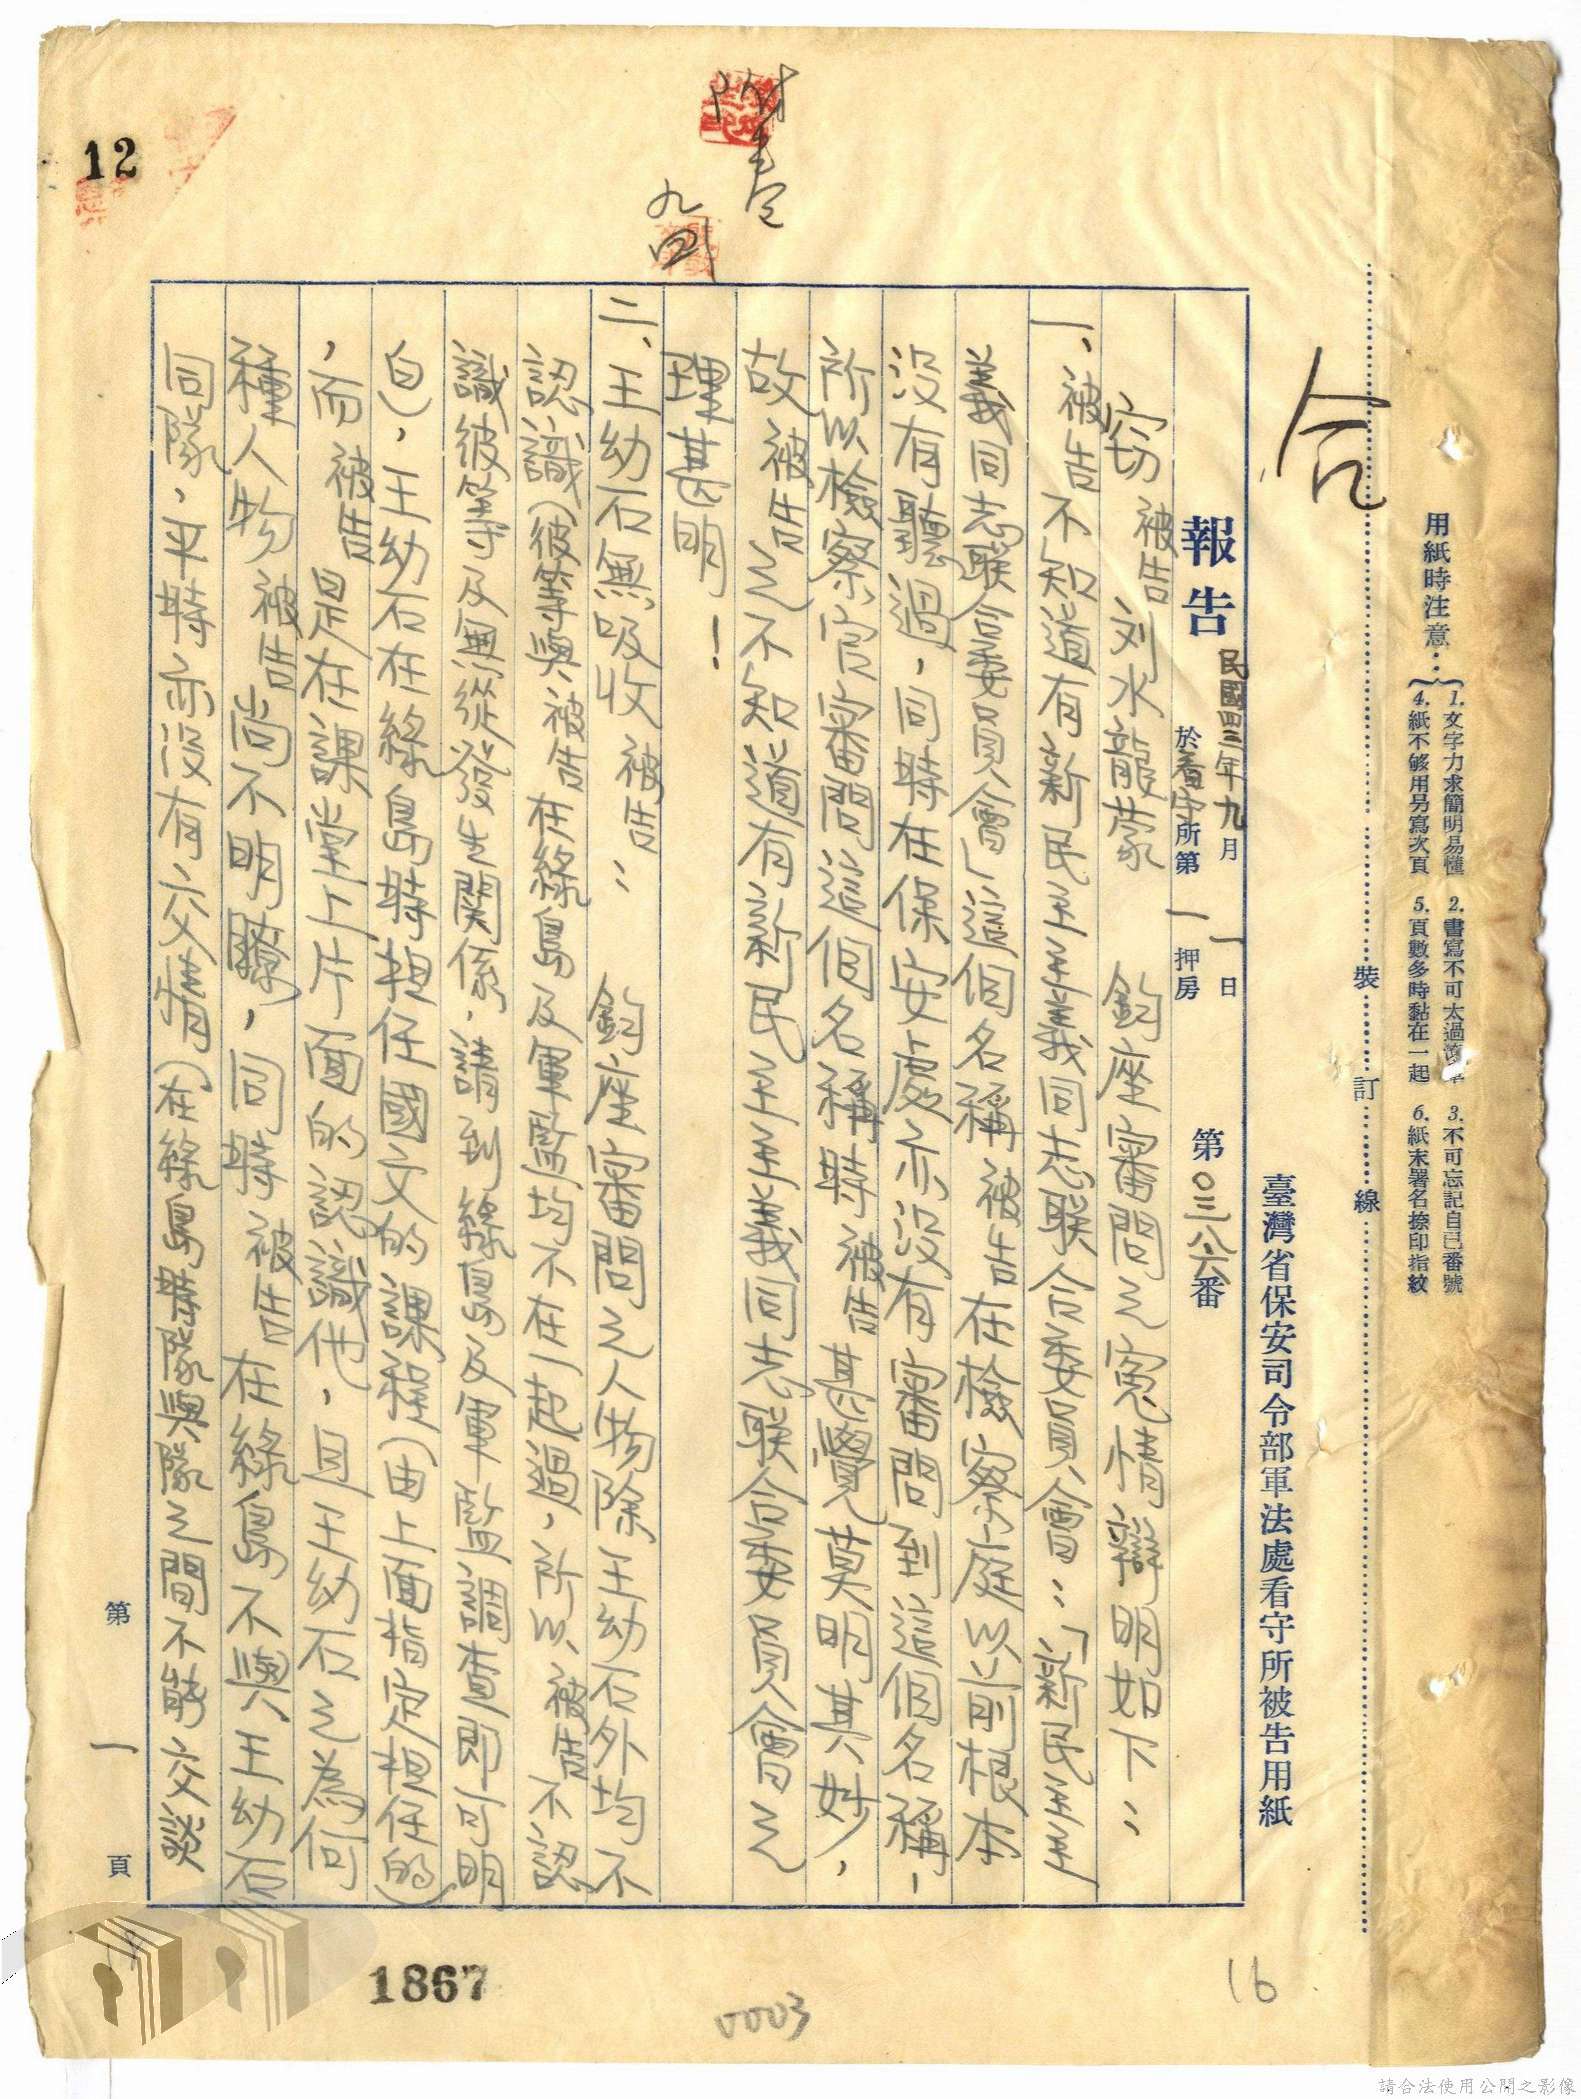 用紙時注意：
1.文字力求簡明易懂 2.書寫不可太過潦草 3.不可忘記自己番號
4.紙不够用另寫次頁 5.頁數多時黏在一起 6.紙末署名捺印指紋
裝 訂 線
合
臺灣省保安司令部軍法處看守所被告用紙
報告 民國四三年九月一日
於看守所第一押房 第〇三八六番
窃被告刘水龍蒙 鈞座審問之冤情辯明如下：
一、被告不知道有新民主主義同志联合委員會：「新民主主
義同志联合委員會」這個名稱被告在檢察庭以前根本
没有聽過，同時在保安處亦没有審問到這個名稱，
所以檢察官審問這個名稱時被告甚覺莫明其妙，
故被告之不知道有新民主主義同志联合委員會之
理甚明！
二、王幼石無吸收被告： 鈞座審問之人物除王幼石外均不
認識（彼等與被告在綠島及軍監均不在一起過，所以被告不認
識彼等及無從發生関係，請到綠島及軍監調查即可明
白），王幼石在綠島時担任國文的課程（由上面指定担任的）
，而被告是在課堂上片面的認識他，且王幼石之為何
種人物被告尚不明瞭，同時被告在綠島不與王幼石
同隊，平時亦没有交情（在綠島時隊與隊之間不能交談
第一頁
附卷
九四
12
1867
0003
16
請合法使用公開之影像